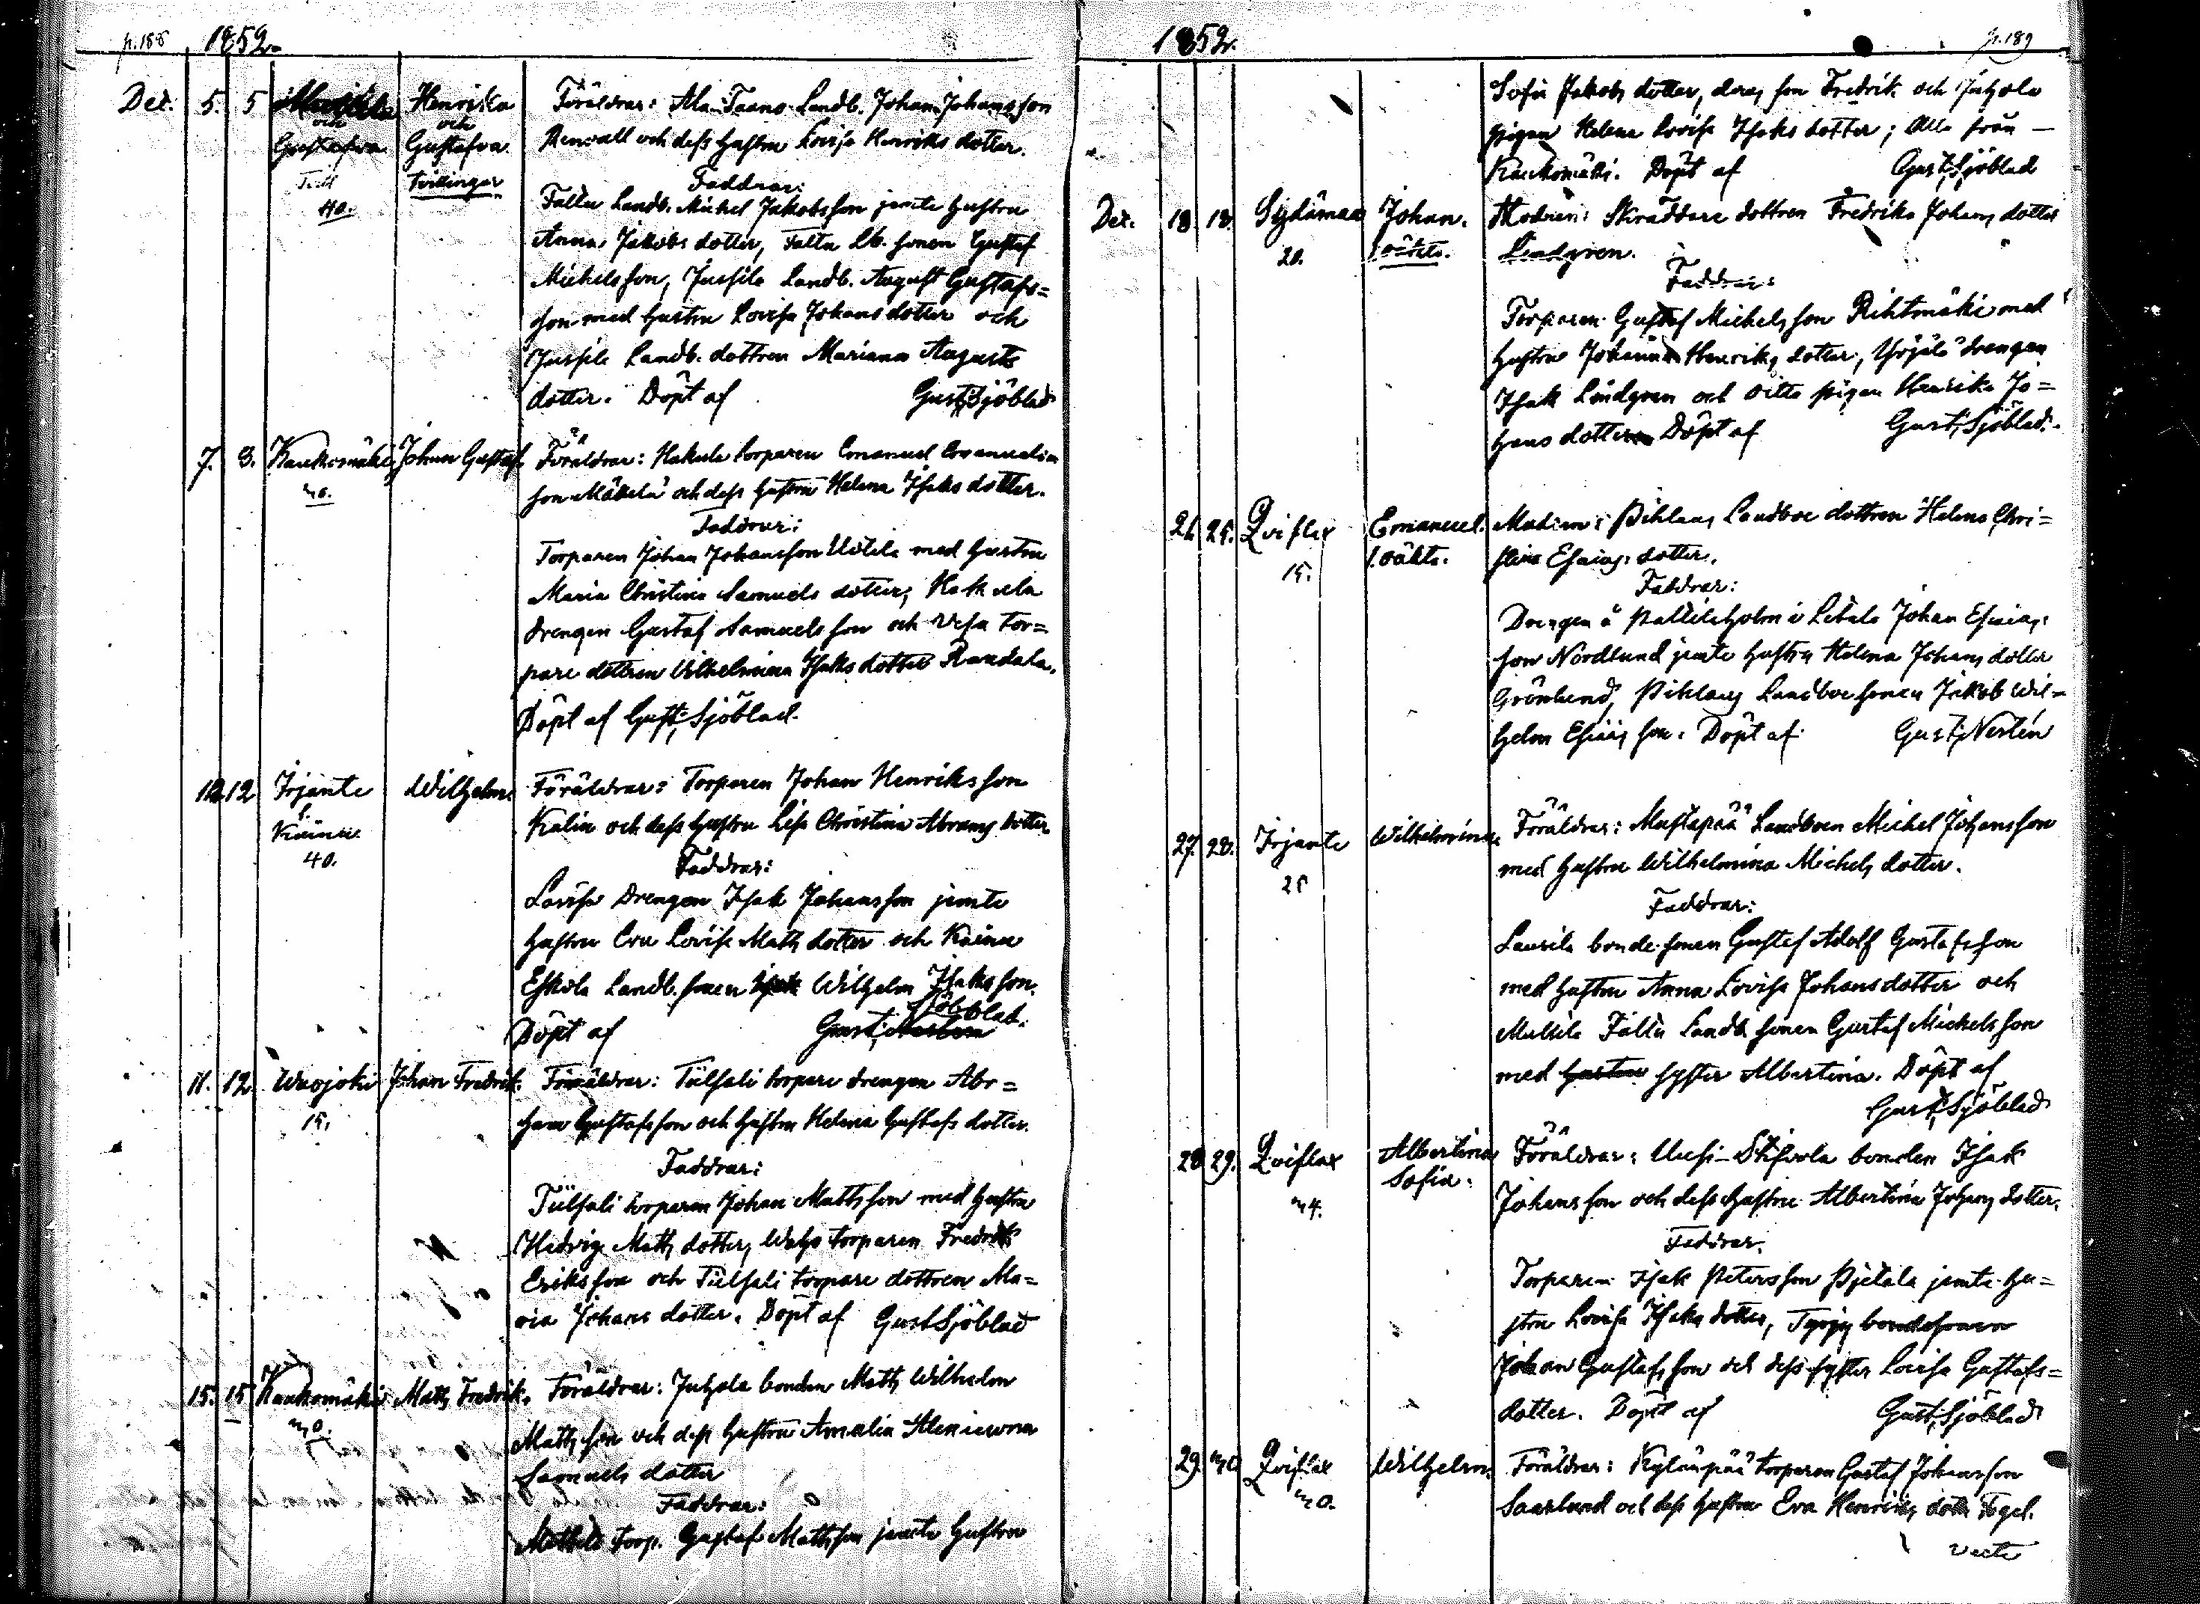 p. 188
1852.
Dec. 5. 5
och
Gustafva
40.
Henrika
och
Gustafva
tvillingar
Föräldrar: Ala-Taano Landb. Johan Johansson
Renvall och dess hustru Lovisa Henriksdotter.
Faddrar:
Landb. Michel Jakobsson jemte hustru
Anna Jakobsdotter, Lb. sonen Gustaf
Michelsson, Jussila Landb. August Gustafs=
son med hustru Lovisa Johansdotter och
Jussila Landb. dottren Mariana Augusts
dotter. Döpt af Gust. Sjöblad
7. 8. Kaukomäki Johan Gustaf.
Föräldrar: Hakula torparen Emanuel Emanuels
son Mäkelä och dess hustru Helena Isaksdotter.
Faddrar:
Torparen Johan Johansson Uotila med hustru
Maria Christina Samuelsdotter, Hakula
drengen Gustaf Samuelsson och Vesa tor=
pare dottren Vilhelmina Isaksdotter Randala.
Döpt af Gust. Sjöblad.
12 12 Irjante
Kaina
40.
Wilhelm.
Föräldrar: Torparen Johan Henriksson
Kalin och dess hustru Lisa Christina Abramsdotter
Faddrar:
Drengen Isak Johansson jemte
hustru Eva Lovisa Matsdotter och Kaina
Eskola Landb. sonen Wilhelm Isaksson.
Döpt af Gust. Sjöblad.
11. 12. Waojoki Johan Fredrik.
15.
Föräldrar: Tülsali torpare drengen Abr=
ham Gustafsson och hustru Helena Gustafsdotter.
Faddrar:
Tülsali torparen Johan Mattsson med hustru
Hedvig Mattsdotter, torparen Fredrik
Eriksson och Tülsali torpare dottren Ma=
ria Johansdotter. Döpt af Gust Sjöblad
15. 15 Kaukomäki Matts Fredrik.
Föräldrar: Juhola bonden Matts Wilhelm
Mattsson och dess hustru Amalia
Samuelsdotter
Faddrar:
Mattila torp. Gustaf Mattsson jemte hustru
1852.
p. 189
Sofia Jakobsdotter, deras son Fredrik och Juhola
pigan Helena Lovisa Isaksdotter; Alla från —
Kaukomäki. Döpt af Gust. Sjöblad
Dec. 18. 18. Sydänmaa
20.
Johan.
oäkta.
Modren: Skräddare dottren Fredrika Johansdotter
Lindgren.
Faddrar:
Torparen Gustaf Michelsson Rihtmäki med
hustru Johanna Henriksdotter, Yrjälä drengen
Isak Lindgren och pigan Henrika Jo=
hans dotter Döpt af Gust. Sjöblad.
21. 25. Qviflax
15.
Emanuel.
oäkta.
Modren: Pihlaus Landboe dottren Helena Chri=
stina Esaiasdotter.
Faddrar:
Drengen å Pallilaholm i Letala Johan Esaias
son Nordlund jemte hustru Helena Johansdotter
Grönlund, Pihlaus Landboe sonen Jakob Wil=
helm Esaiasson. Döpt af Gust. Nestén
27. 28. Irjante
25
Wilhelmina.
Föräldrar: Mustapää Landboen Michel Johansson
med hustru Wilhelmina Michelsdotter.
Faddrar:
Laurila bonde sonen Gustaf Adolf Gustafsson
med hustru Anna Lovisa Johansdotter och
Landb. sonen Gustaf Michelsson
med hustru syster Albertina. Döpt af
Gust. Sjöblad
28 29. Qviflax
Albertina
Sofia.
Föräldrar: Uusi-Skivola bonden Isak
Johansson och dess hustru Albertina Johansdotter.
Faddrar.
Torparen Isak Petersson Pjetala jemte hu=
stru Lovisa Isaksdotter, bondesonen
Johan Gustafsson och dess syster Lovisa Gustafs=
dotter. Döpt af Gust. Sjöblad
29. Qviflax Wilhelm.
Föräldrar: Kylänpää torparen Gustaf Johansson
Saarlund och dess hustru Eva Henriksdotter Fogel.
verte